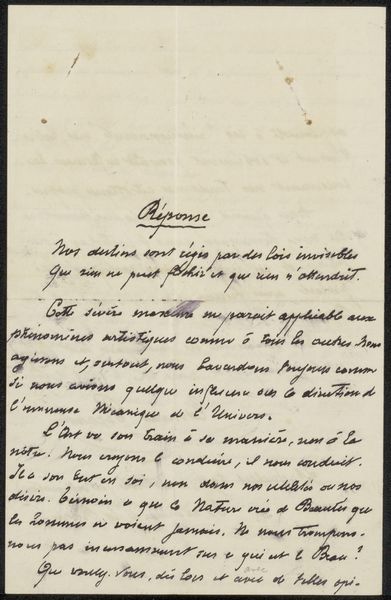 Réponse
Nos destins sont régis par des lois invisibles
Que rien ne peut fléchir et que rien n'attendrit.
Cette sévère maxime me parait applicable aux
phénomènes artistiques comme à tous les autres. Nous
agissons et, surtout, nous bavardons toujours comme
si nous avions quelque influence sur la direction de
l'immense Mécanique de l'Univers.
L'Art va son train à sa manière, non à la
nôtre. Nous croyons le conduire, il nous conduit.
Il a son but en soi, non dans nos utilités ou nos
désirs. Témoin ce que la Nature crée de Beautés que
les hommes ne voient jamais. Ne nous trompons-
nous pas incessamment sur ce qui est le Beau?
Que voulez-vous, dès lors et avec de telles opi-